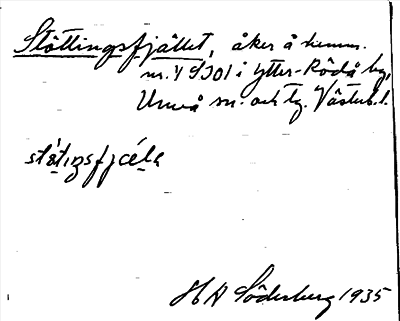 Stöttingsfjället, åker å hemm.
nr. 4 i Ytter-Rödå by,
Umeå sn. och tg. Västerb. l.
H A Söderberg 1935